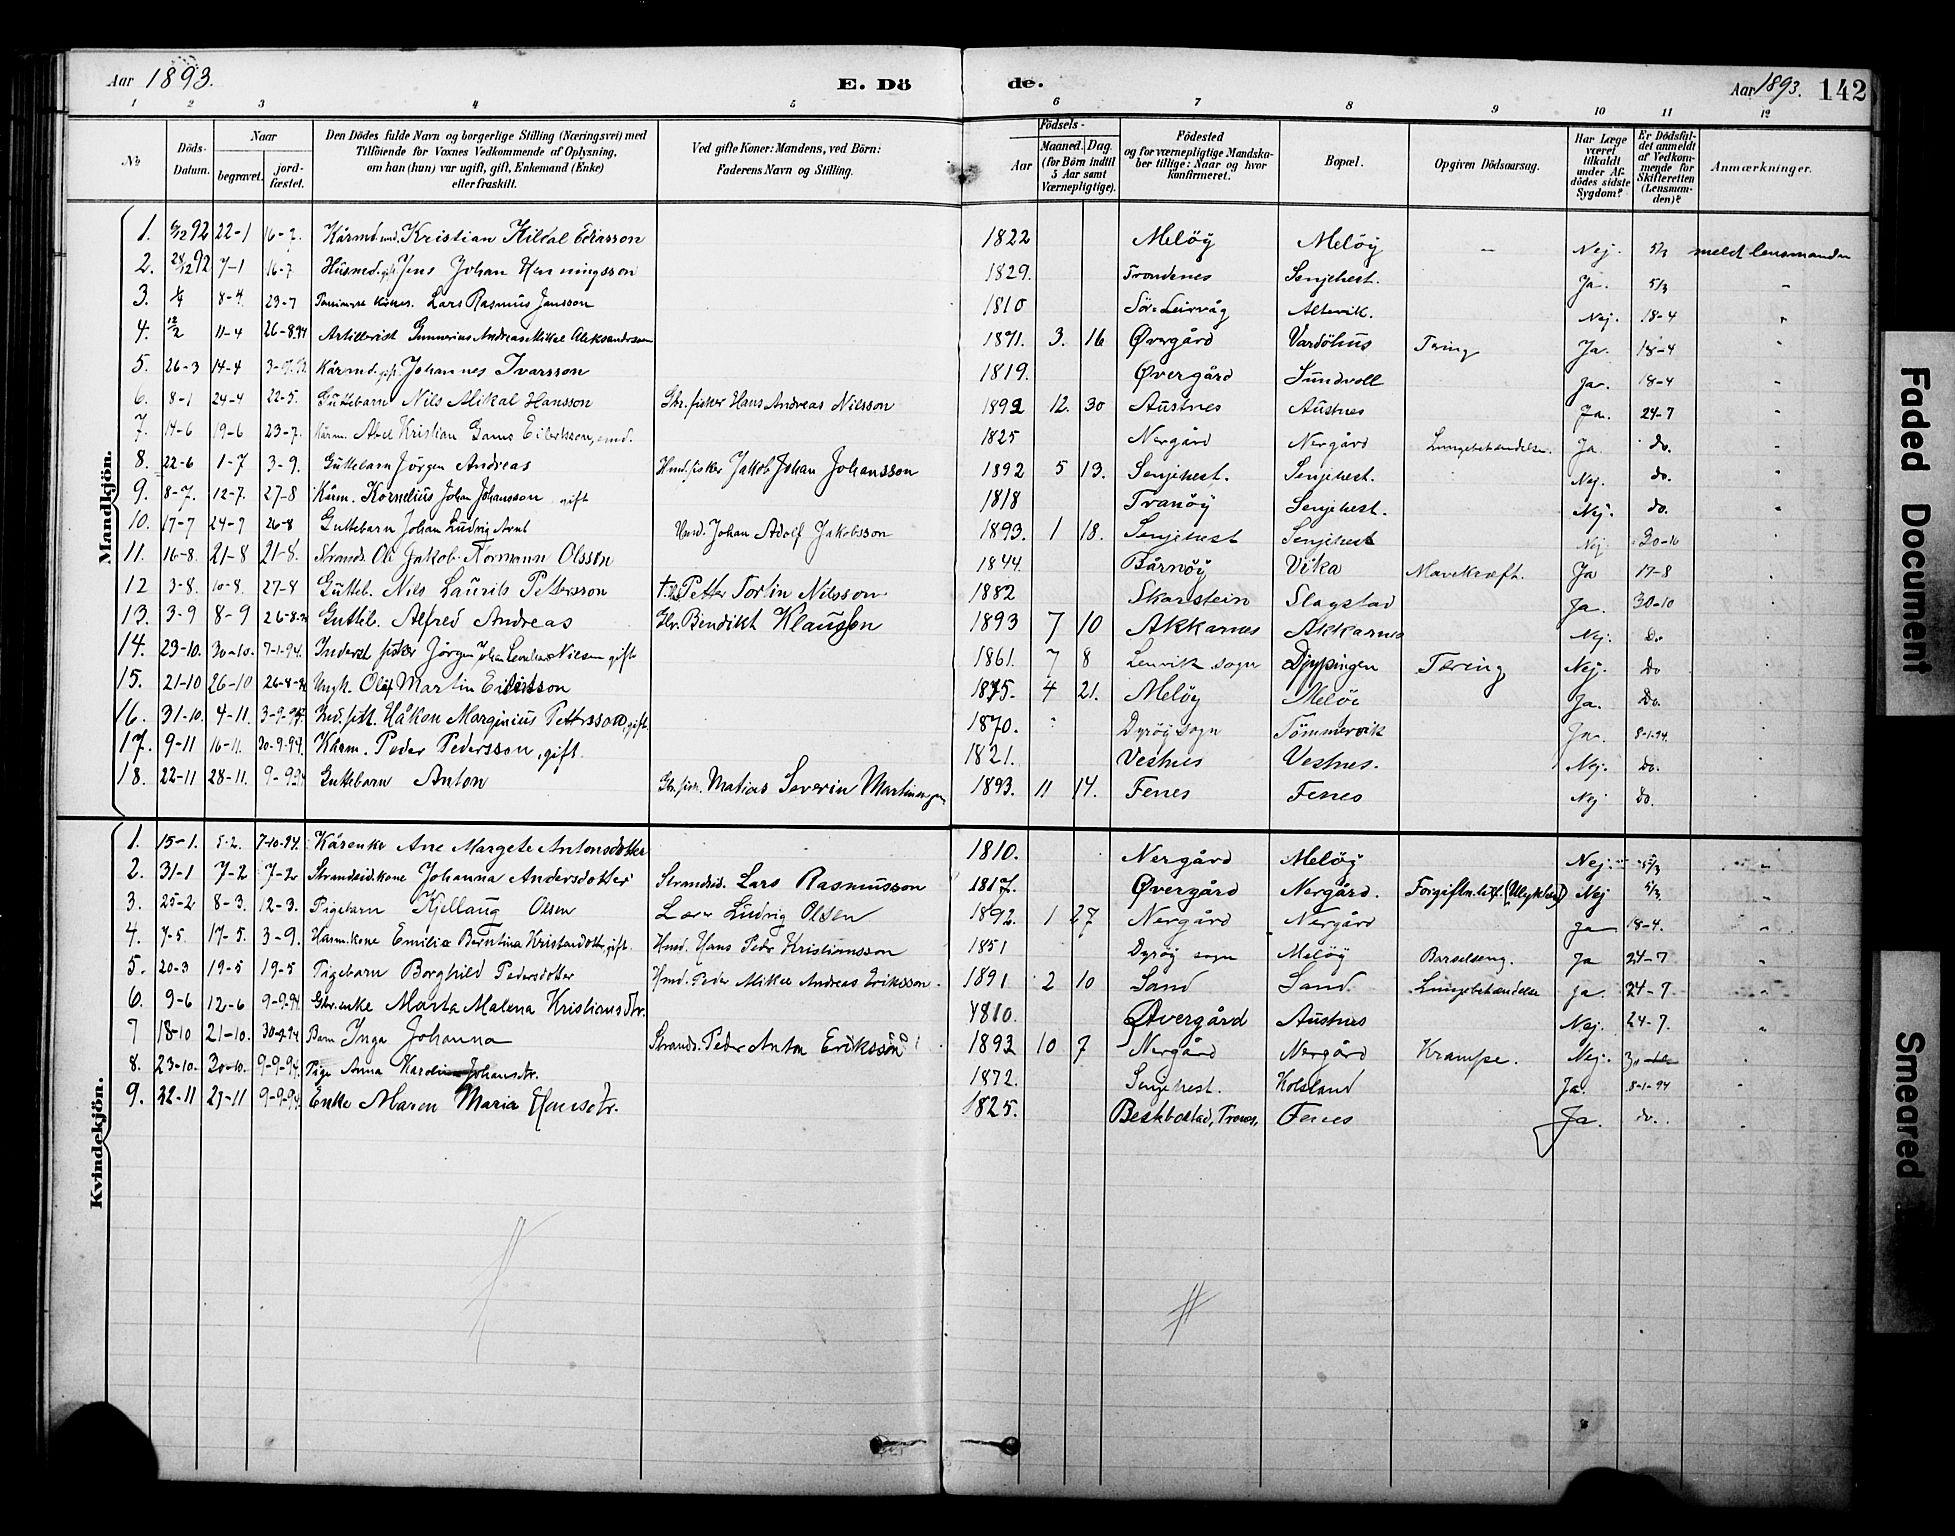 Aar 1893. E. Dö de. Aar 1893. 142
1 2 3 4 5 6 7 8 9 10 11 12
No Döds-Datum. Naar begravet. jord-fæstet. Den Dödes fulde Navn og borgerlige Stilling (Næringsvei) med Tilföiende for Voxnes Vedkommende af Oplysning, om han (hun) var ugift, gift, Enkemand (Enke) eller fraskilt. Ved gifte Koner: Mandens, ved Börn: Faderens Navn og Stilling. Födsels- Aar Maaned. Dag. (for Börn indtil 5 Aar samt Værnepligtige). Födested og for værnepligtige Mandskaber tillige: Naar og hvor konfirmeret. Bopæl. Opgiven Dödsaarsag. Har Læge været tilkaldt under Afdödes sidste Sygdom? Er Dödsfaldet anmeldt af Vedkommende for Skifteretten (Lensmanden)? Anmærkninger.
Mandkjön.
1. 6/12 92 22-1 16-7. Kristian Kildal 1822 Melöy Melöy - Nej. 5/3 meldt lensmanden
2. 28/12 92 7-1 16-7 Husmd. gift Jens Johan Henningsson 1829. Trondenes Senjehest. Ja. 5/3 "
3. 8-4. 23-7 Lars Rasmus Jansson 1810 Altevik. Nej. 18-4 "
4. 12/2 11-4 26-8.94 Artillerist Gunnerius Andreas Mikal Aleksandersson 1871. 3. 16 Øvergård Vardöhus Tæring Ja. 18-4 "
5. 26-3 14-4 Kårmd. gift Johannes Ivarsson 1819. Øvergård Sundvoll Ja. 18-4 "
6. 8-1 24-4 22-5. Guttebarn Nils Mikal Hansson Gbr. fisker Hans Andreas Nilsson 1892 12. 30 Austnes Austnes Ja. 24-7 "
7. 14-6 19-6 23-7. Kårm. Abel Kristian 1825 Nergård Nergård Lungebetændelse. Ja do. "
8. 22-6 1-7 3-9. Guttebarn Jörgen Andreas Husmd. fisker Jakob Johan Johansson 1892 5 13. Senjehest. Senjehest. Nej. do. "
9. 8-7. 12-7. 27-8 Kårm. Kornelius Johan Johansson, gift 1818 Tranöy Senjehest. Nej. do. "
10. 17-7 24-7 26-8 Guttebarn Johan Ludvig Arnt Husmd. Johan Adolf Jakobsson 1893. 1 18. Senjehest Senjehest Nej 30-10
11. 16-8. 21-8 21-8. Strands. Ole Jakob Normann Olsson 1844 Bårnöy Vika Mavekræft. Ja 17-8
12 3-8. 10-8. 27-8 Gutteb. Nils Laurits Pettersson Petter Tortin Nilsson 1882 Skarstein Slagstad Ja. 30-10
13. 3-9 8-9 26-8-94 Gutteb. Alfred Andreas Gbr. Bendikt Klausson 1893 7 10 Akkarnes Akkarnes Nej. Do
14. 23-10. 30-10. 7-1-94. Inderst fisker Jörgen Johan Nilsen gift 1861. 7 8 Lenvik sogn Djuppingen Tæring Nej. Do
15. 21-10 26-10 26-8-94 Ungk. Olaf Martin Eriksson 1875. 4 21. Melöy Melöi Ja. Do.
16. 31-10. 4-11. 3-9-94. Ind. fisk. Håkon Marginius Pettersson, gift. 1870. Dyröy sogn Tömmervik Ja. 8-1.94.
17. 9-11 16-11. 30-9.94. Kårm. Peder Pedersson, gift. 1821. Vestnes Vestnes. Nej. do.
18. 22-11 28-11. 9-9.94 Guttebarn Anton Gbr. fisk. Matias Severin Martinusson 1893. 11 14. Fenes Fenes Nej Do.
Kvindekjön.
1. 15-1. 5-2. 7-10-94. Kårenke Ane Margete Antonsdotter 1810. Nergård Melöy Nej. 5/3 "
2. 31-1 7-2 7-2 Strandsid.kone Johanna Andersdotter Strandsid. Lars Rasmusson 1817. Øvergård Nergård. Nej 5/3 "
3. 25-2 8-3. 12-3. Pigebarn Kjellaug Olsen Lærer Ludvig Olsen 1892. 1 27 Nergård Nergård Ja 18-4. "
4. 7-5. 17-5. 3-9. Husm.kone Emilie Berntina Kristiansdotter, gift. Husmd. Hans Peder Kristiansson 1851 Dyröy sogn Melöy Barselseng. Ja 24-7 "
5. 20-3 19-5 19-5 Pigebarn Borghild Pedersdotter Husmd. Peder Mikal Andreas Eriksson. 1891 2 10 Sand Sand Lungebetændelse Ja. 24-7 "
6. 9-6 12-6 9-9-94 Gbr.enke Marta Malena Kristiansdtr. 1810. Øvergård Austnes Nej. 24-7. "
7 18-10 21-10. Barn Inga Johanna Strands. Peder Anton Eriksson 1893 10 7 Nergård Nergård Krampe. Nej. "
8. 23-10. 30-10. 9-9-94. Pige Anna Johansdtr. 1872. Senjehest. Kolsland Ja. 8-1-94 "
9. 22-11 27-11 9-9-94 Enke Maren Maria Hansdtr. 1825. Fenes Ja. do. "
Faded Document
Smeared